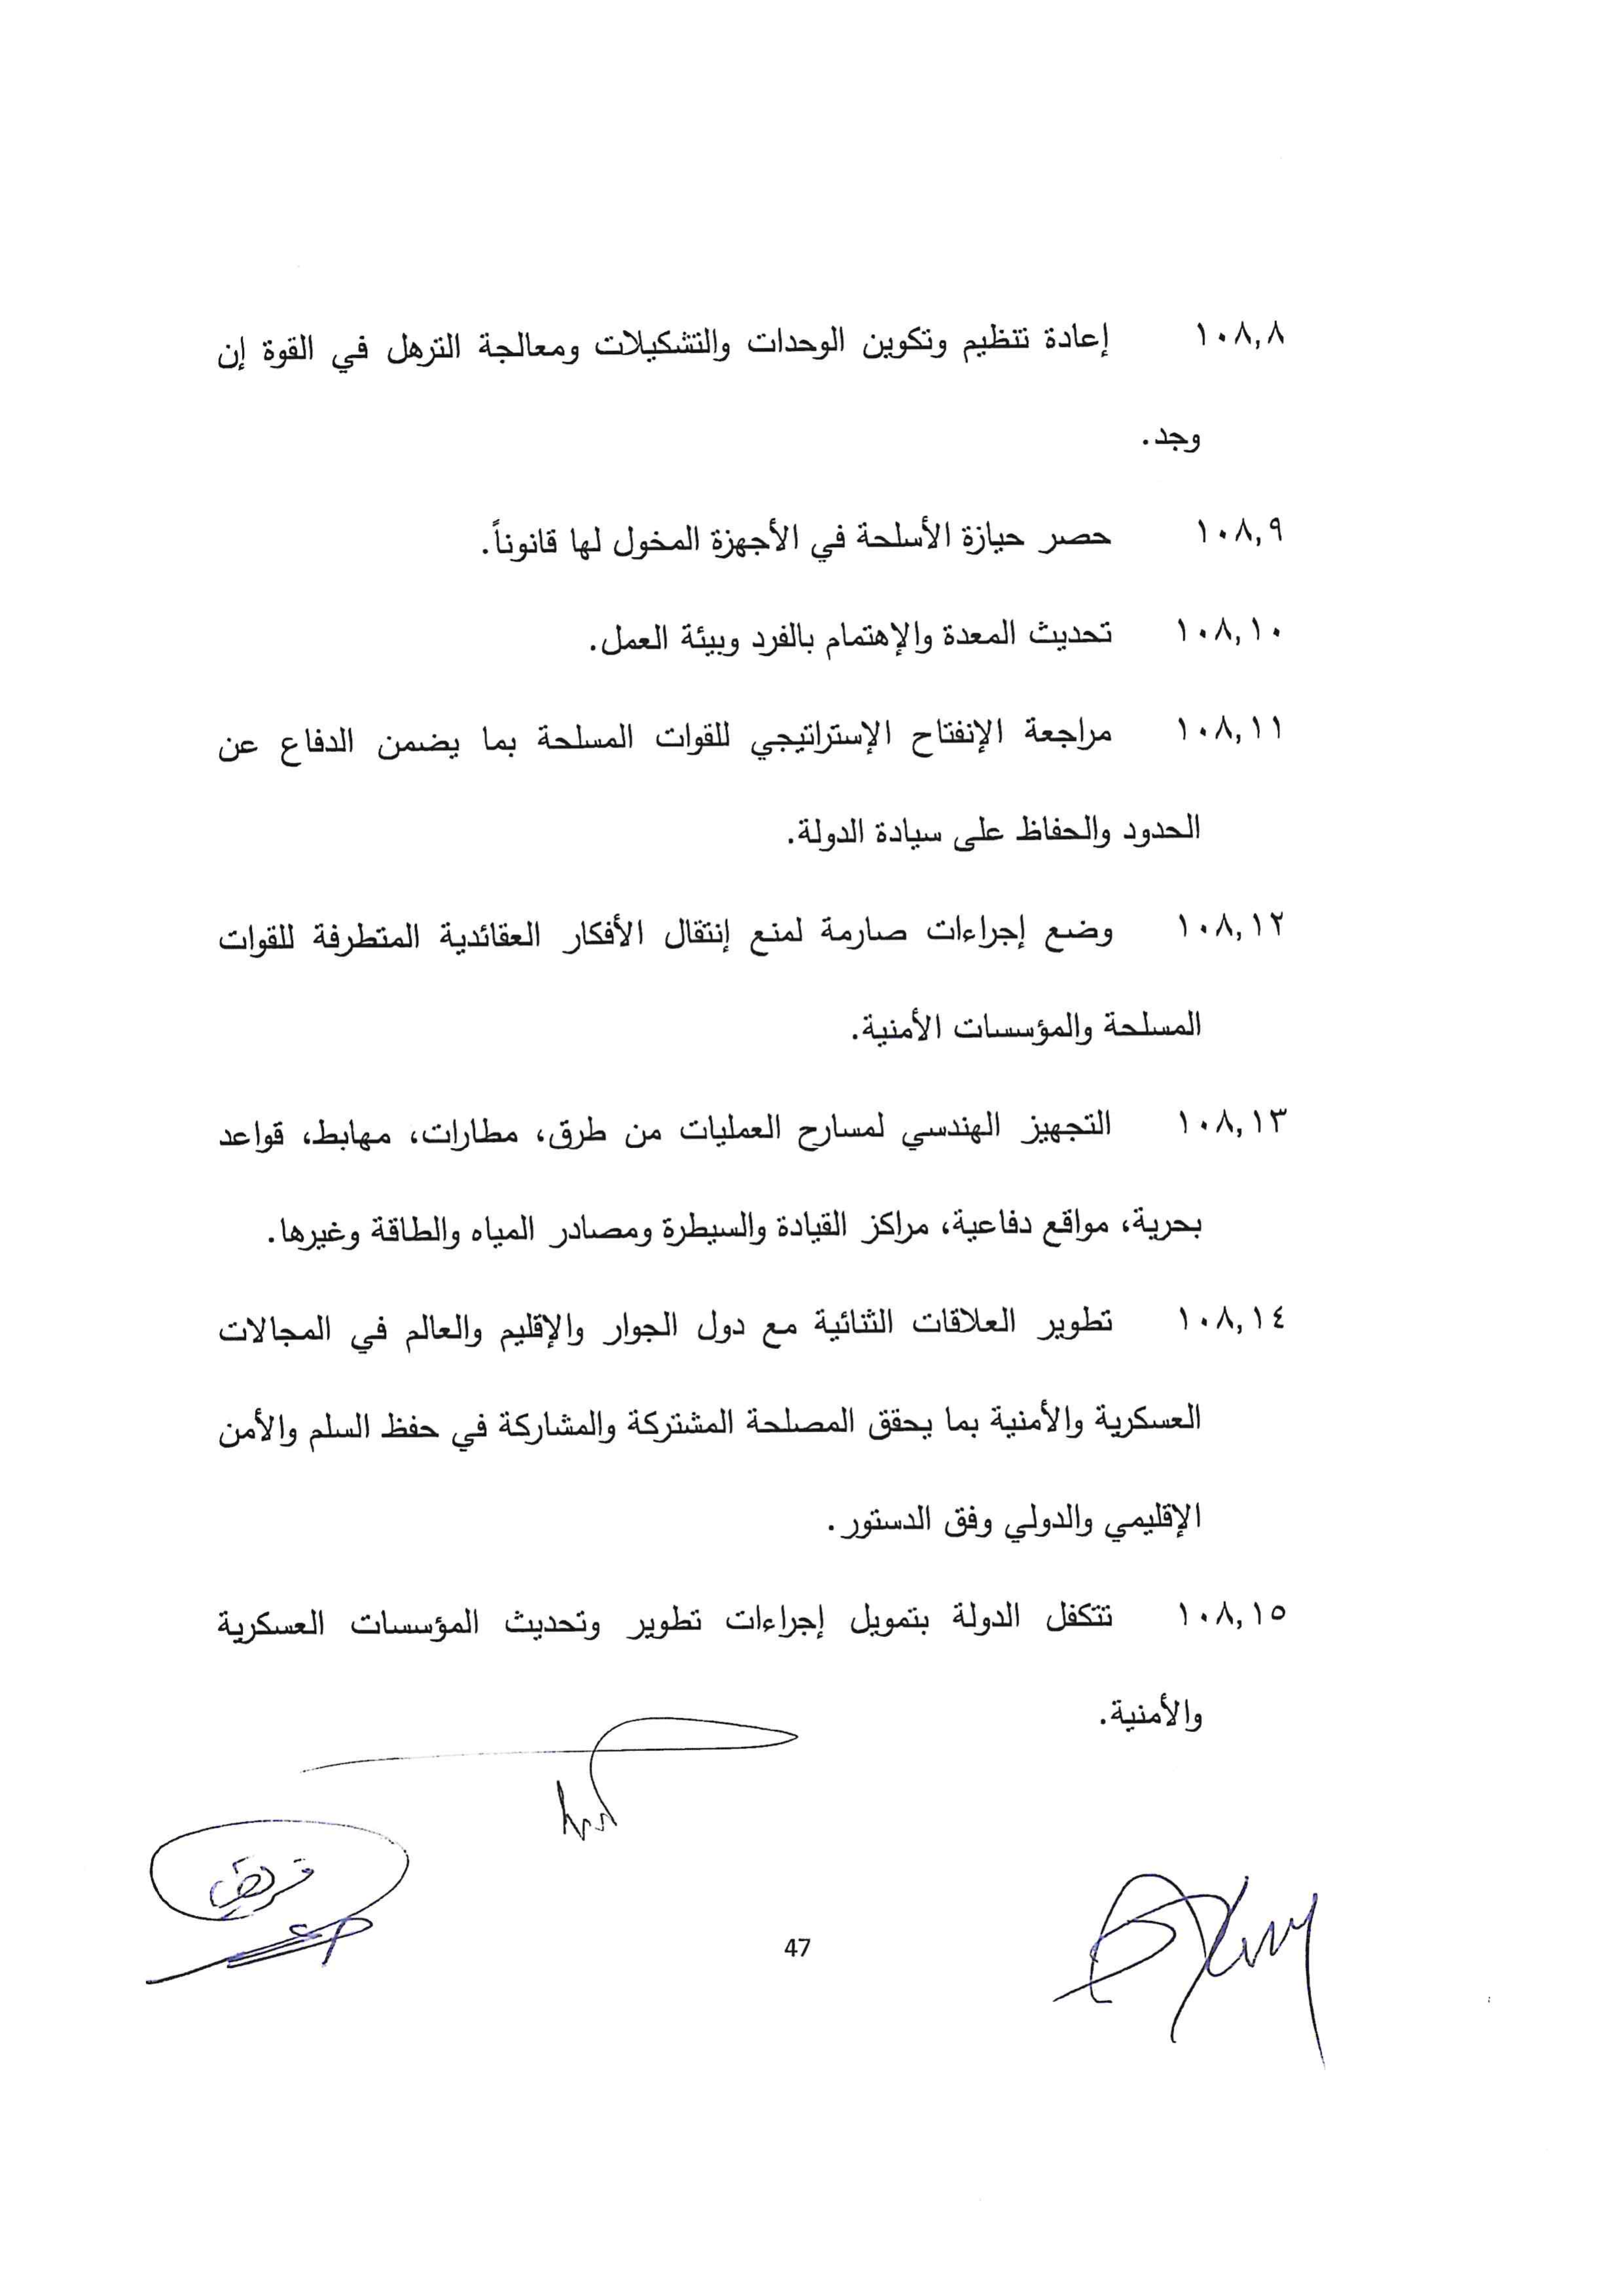 ١٠٨,٨ إعادة تنظيم وتكوين الوحدات والتشكيلات ومعالجة الترهل في القوة إن
وجد.
١٠٨,٩ حصر حيازة الأسلحة في الأجهزة المخول لها قانوناً.
١٠٨,١٠ تحديث المعدة والإهتمام بالفرد وبيئة العمل.
١٠٨,١١ مراجعة الإنفتاح الإستراتيجي للقوات المسلحة بما يضمن الدفاع عن
الحدود والحفاظ على سيادة الدولة.
١٠٨,١٢ وضع إجراءات صارمة لمنع إنتقال الأفكار العقائدية المتطرفة للقوات
المسلحة والمؤسسات الأمنية.
١٠٨,١٣ التجهيز الهندسي لمسارح العمليات من طرق، مطارات، مهابط، قواعد
بحرية، مواقع دفاعية، مراكز القيادة والسيطرة ومصادر المياه والطاقة وغيرها.
١٠٨,١٤ تطوير العلاقات الثنائية مع دول الجوار والإقليم والعالم في المجالات
العسكرية والأمنية بما يحقق المصلحة المشتركة والمشاركة في حفظ السلم والأمن
الإقليمي والدولي وفق الدستور.
١٠٨,١٥ تتكفل الدولة بتمويل إجراءات تطوير وتحديث المؤسسات العسكرية
والأمنية.
47